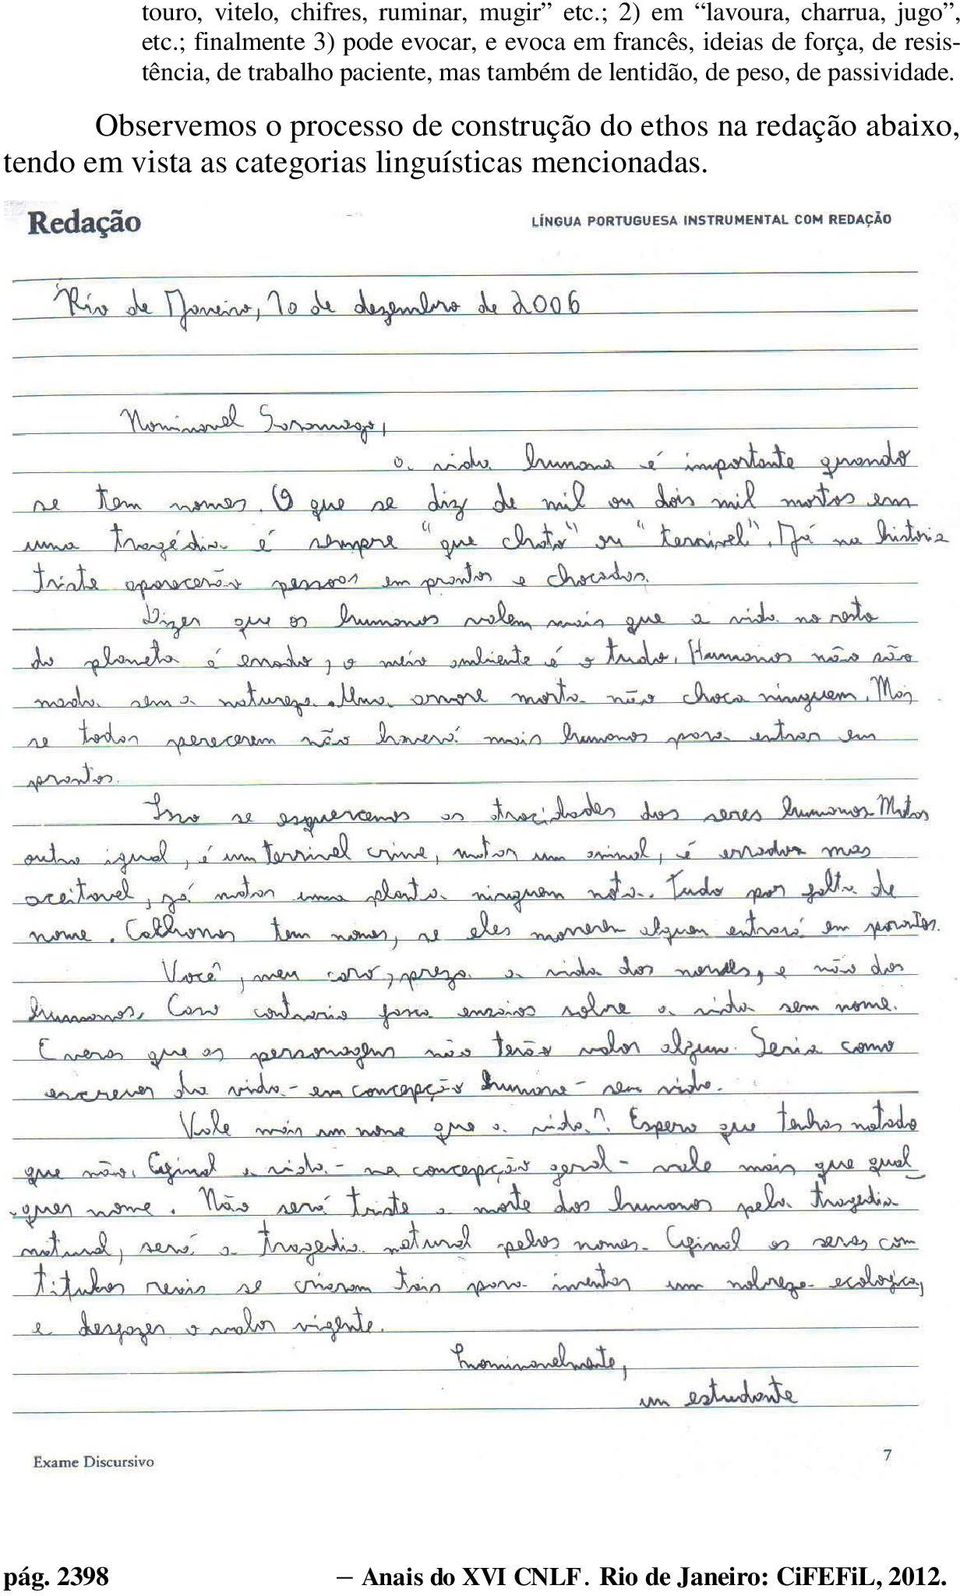 touro, vitelo, chifres, ruminar, mugir etc.; 2) em “lavoura, charrua, jugo”,
etc.; finalmente 3) pode evocar, e evoca em francês, ideias de força, de resis-
tência, de trabalho paciente, mas também de lentidão, de peso, de passividade.
Observemos o processo de construção do ethos na redação abaixo,
tendo em vista as categorias linguísticas mencionadas.
Redação
LÍNGUA PORTUGUESA INSTRUMENTAL COM REDAÇÃO
Rio de Janeiro, 10 de dezembro de 2006
Nominavel Saramago,
a vida humana é importante quando
se tem nomes. O que se diz de mil ou dois mil mortos em
uma tragédia é sempre "que chato" ou "terrivel". Já na história
triste aparecerão pessoas em prantos e chocados.
Dizer que os humanos valem mais que a vida no resto
do planeta é errado, o meio ambiente é o tudo. Humanos não são
nada sem a natureza. Uma arvore morta não choca ninguem. Mas,
se todas perecerem não haverá mais humanos para entrar em
prantos.
Isso se esquercemos as atrocidades dos seres humanos. Matar
outro igual, é um terrivel crime, matar um animal, é errado mas
aceitavel, já matar uma planta ninguem nota. Tudo por falta de
nome. Calhorras tem nomes, se eles morrerem alguem entrará em prantos.
Você, meu caro, preza a vida dos nomes, e não dos
humanos. Caso contrario faça ensaios sobre a vida sem nome.
E veras que os personagens não terão valor algum. Seria como
escrever da vida - em concepção humana - sem vida.
Vale mais um nome que a vida? Espero que tenhas notado
que não. Afinal a vida - na concepção geral - vale mais que qual-
quer nome. Não será triste a morte dos humanos pela tragedia
natural, será a tragedia natural pelos nomes. Afinal os seres com
titulos reais se criaram tais para inventar um nobreza ecologica,
e desfazer o valor vigente.
hominavelmente,
um estudante
Exame Discursivo
7
pág. 2398 – Anais do XVI CNLF. Rio de Janeiro: CiFEFiL, 2012.